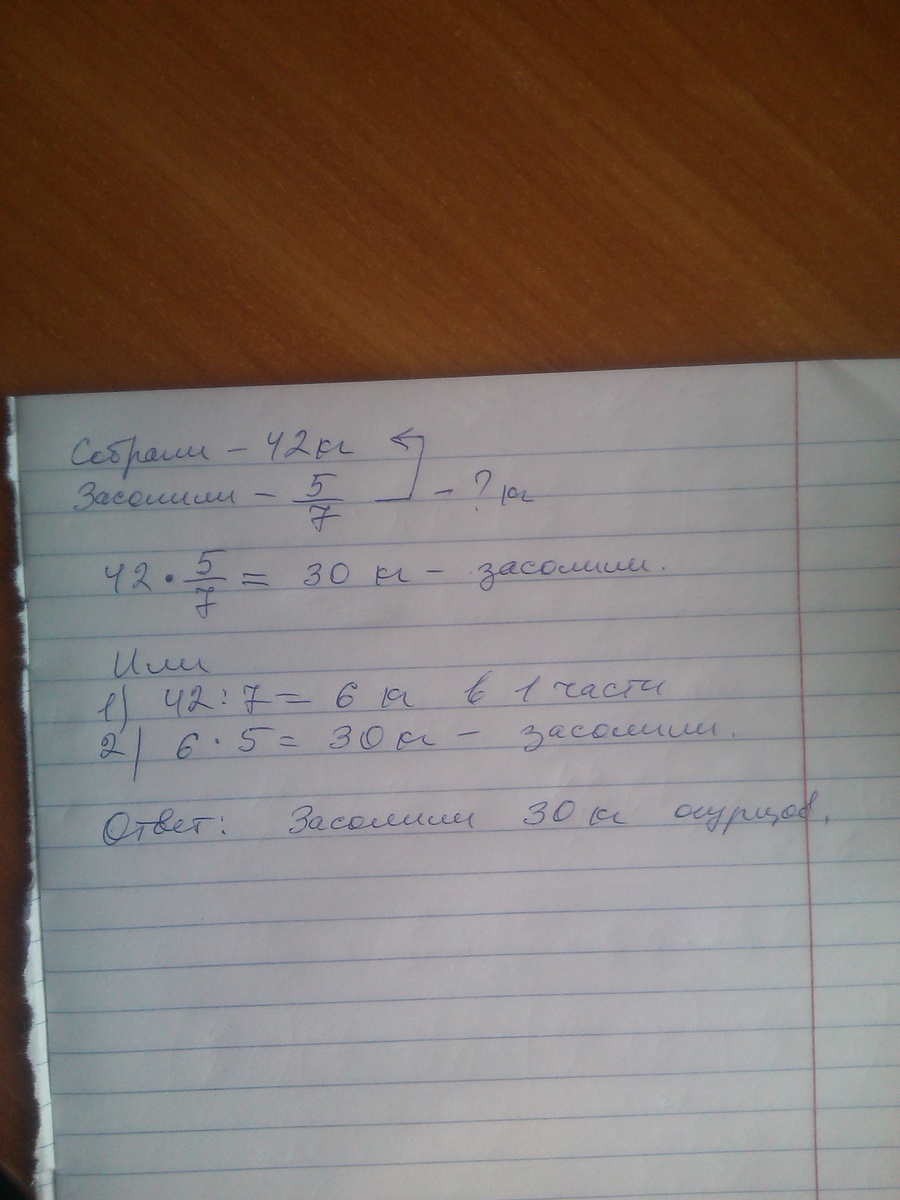 Собрали – 42 кг
Засолили – 5/7 – ? кг
42 · 5/7 = 30 кг – засолили.
Или
1) 42 : 7 = 6 кг в 1 части
2) 6 · 5 = 30 кг – засолили.
Ответ: Засолили 30 кг огурцов.